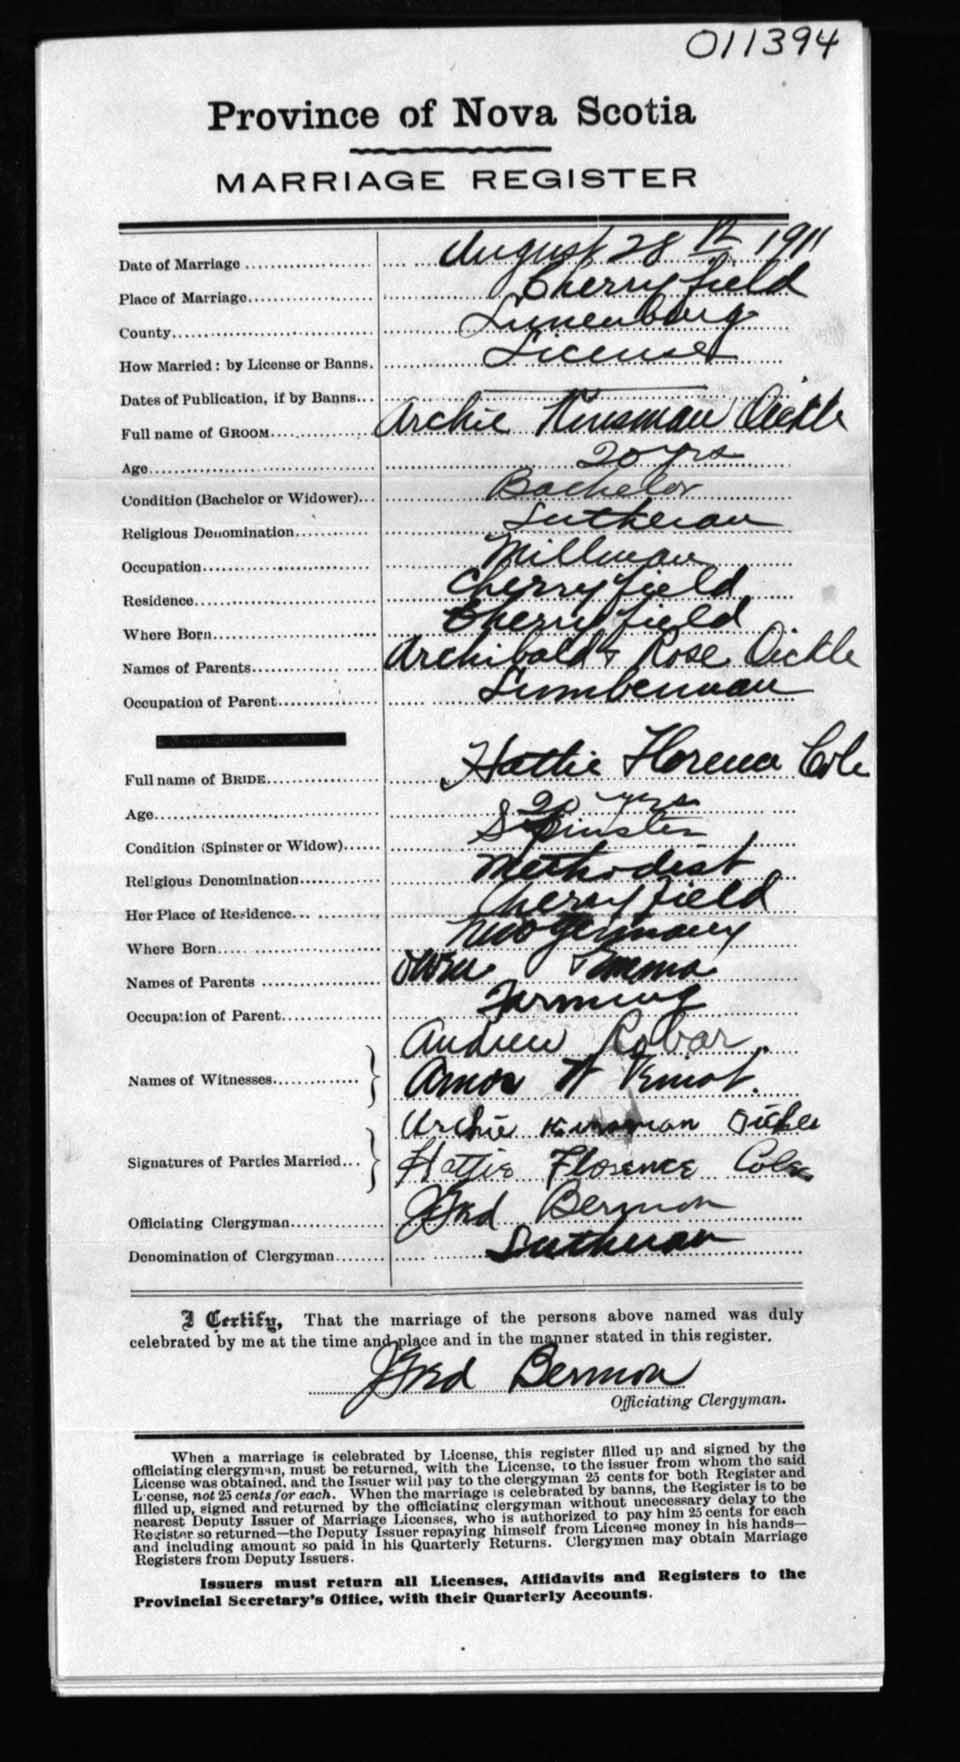 011394
Province of Nova Scotia
MARRIAGE REGISTER
Date of Marriage August 28th 1911
Place of Marriage Cherryfield
County Lunenburg
How Married: by License or Banns. License
Dates of Publication, if by Banns
Full name of GROOM Archie Kinsman Oickle
Age 20 yrs
Condition (Bachelor or Widower) Bachelor
Religious Denomination Lutheran
Occupation Millman
Residence Cherryfield
Where Born Cherryfield
Names of Parents Archibald & Rose Oickle
Occupation of Parent Lumberman
Full name of BRIDE Hattie Florence Cole
Age 20 yrs
Condition (Spinster or Widow) Spinster
Religious Denomination Methodist
Her Place of Residence Cherryfield
Where Born New Germany
Names of Parents Emma
Occupation of Parent Farming
Andrew Robar
Names of Witnesses
Amos Veinot
Archie Kinsman Oickle
Signatures of Parties Married
Hattie Florence Cole
Officiating Clergyman Bermon
Denomination of Clergyman Lutheran
I Certify, That the marriage of the persons above named was duly
celebrated by me at the time and place and in the manner stated in this register.
Bermon
Officiating Clergyman.
When a marriage is celebrated by License, this register filled up and signed by the
officiating clergyman, must be returned, with the License, to the issuer from whom the said
License was obtained, and the Issuer will pay to the clergyman 25 cents for both Register and
License, not 25 cents for each. When the marriage is celebrated by banns, the Register is to be
filled up, signed and returned by the officiating clergyman without unecessary delay to the
nearest Deputy Issuer of Marriage Licenses, who is authorized to pay him 25 cents for each
Register so returned—the Deputy Issuer repaying himself from License money in his hands—
and including amount so paid in his Quarterly Returns. Clergymen may obtain Marriage
Registers from Deputy Issuers.
Issuers must return all Licenses, Affidavits and Registers to the
Provincial Secretary's Office, with their Quarterly Accounts.